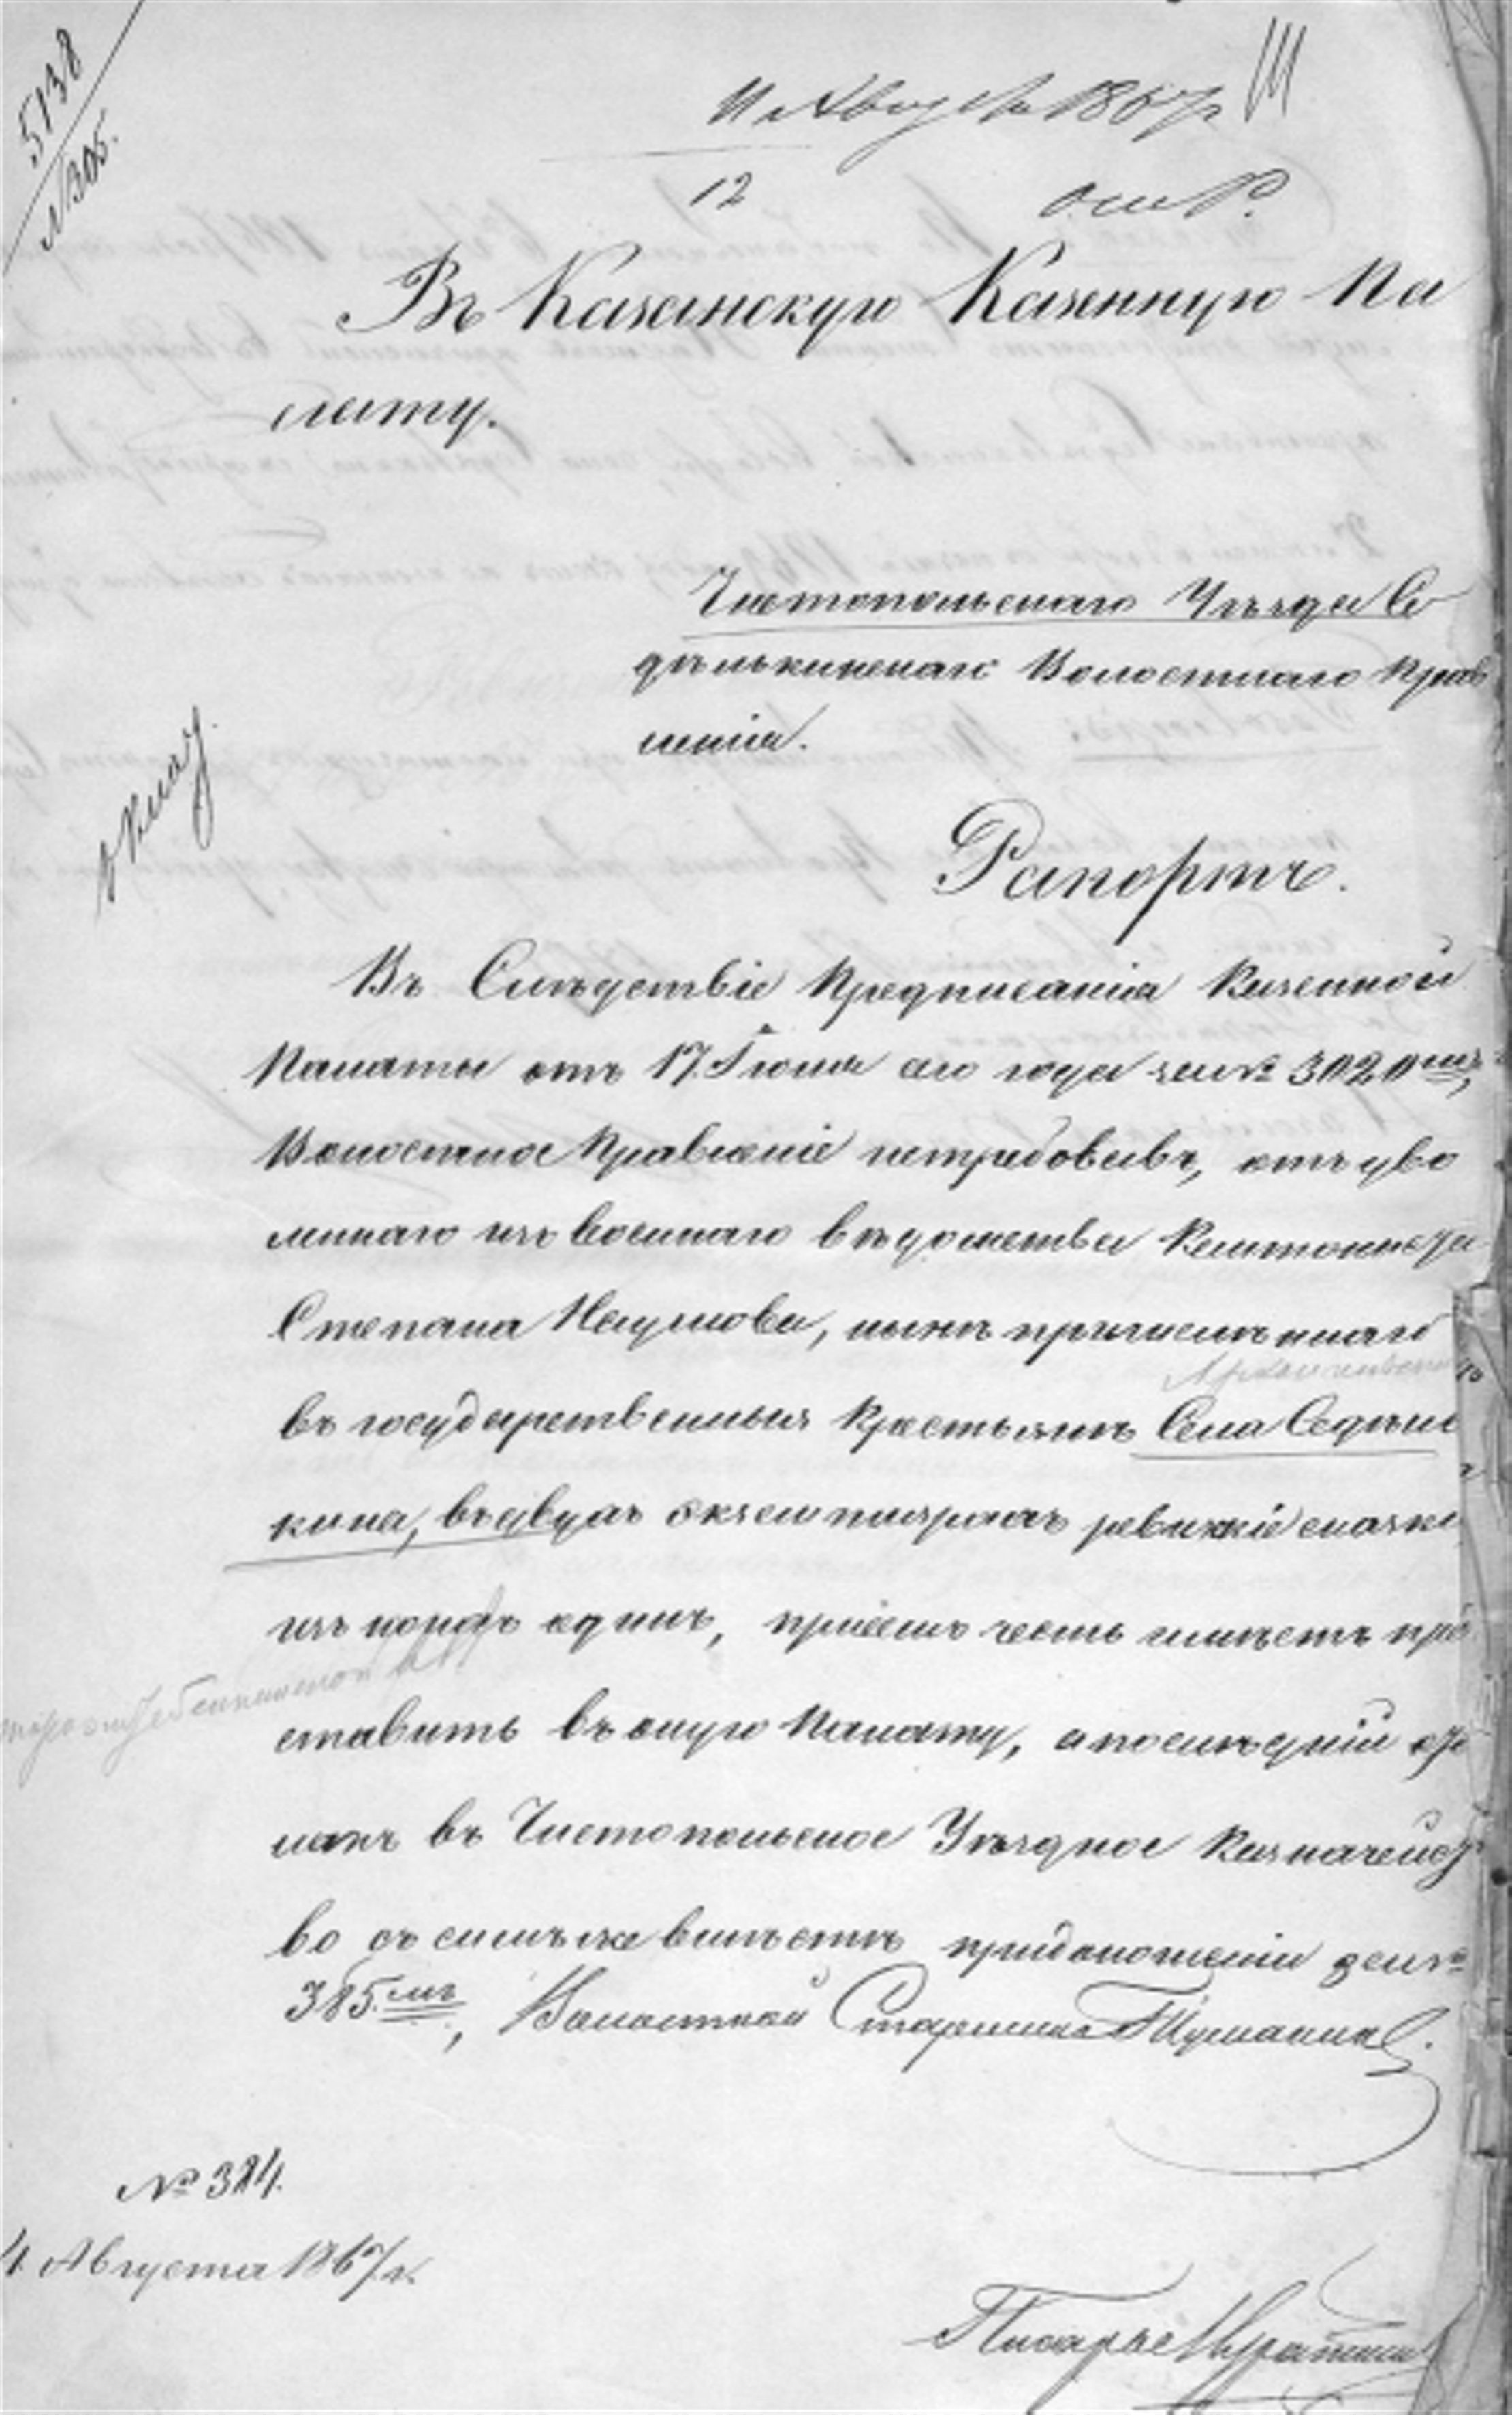 5138
№ 305.
11 Августа 1867 г
12
Въ Казанскую Казенную Па
лату.
Чистопольскаго Уѣзда Се
дѣлькинскаго Волостнаго Прав
ленія.
Рапортъ.
Въ Слѣдствіе Предписанія Казенной
Палаты отъ 17 Іюля сего года за № 3020мъ,
Волостное Правленіе истребовавъ, отъ уво
леннаго изъ Военнаго вѣдомства Кантониста
Степана Наумова, нынѣ причисленнаго
въ государственныя Крестьянъ Села Седѣль
кина, въ двухъ экземплярахъ ревизкіе сказки
изъ коихъ одинъ, при семъ честь имѣетъ пред
ставить въ оную Палату, а послѣдній
въ Чистопольское Уѣздное Казначейст
во съ симъ же вмѣстѣ при доношеніи за №
385мъ, Волостной Старшина
№ 384.
4 Августа 1867 г.
Писарь